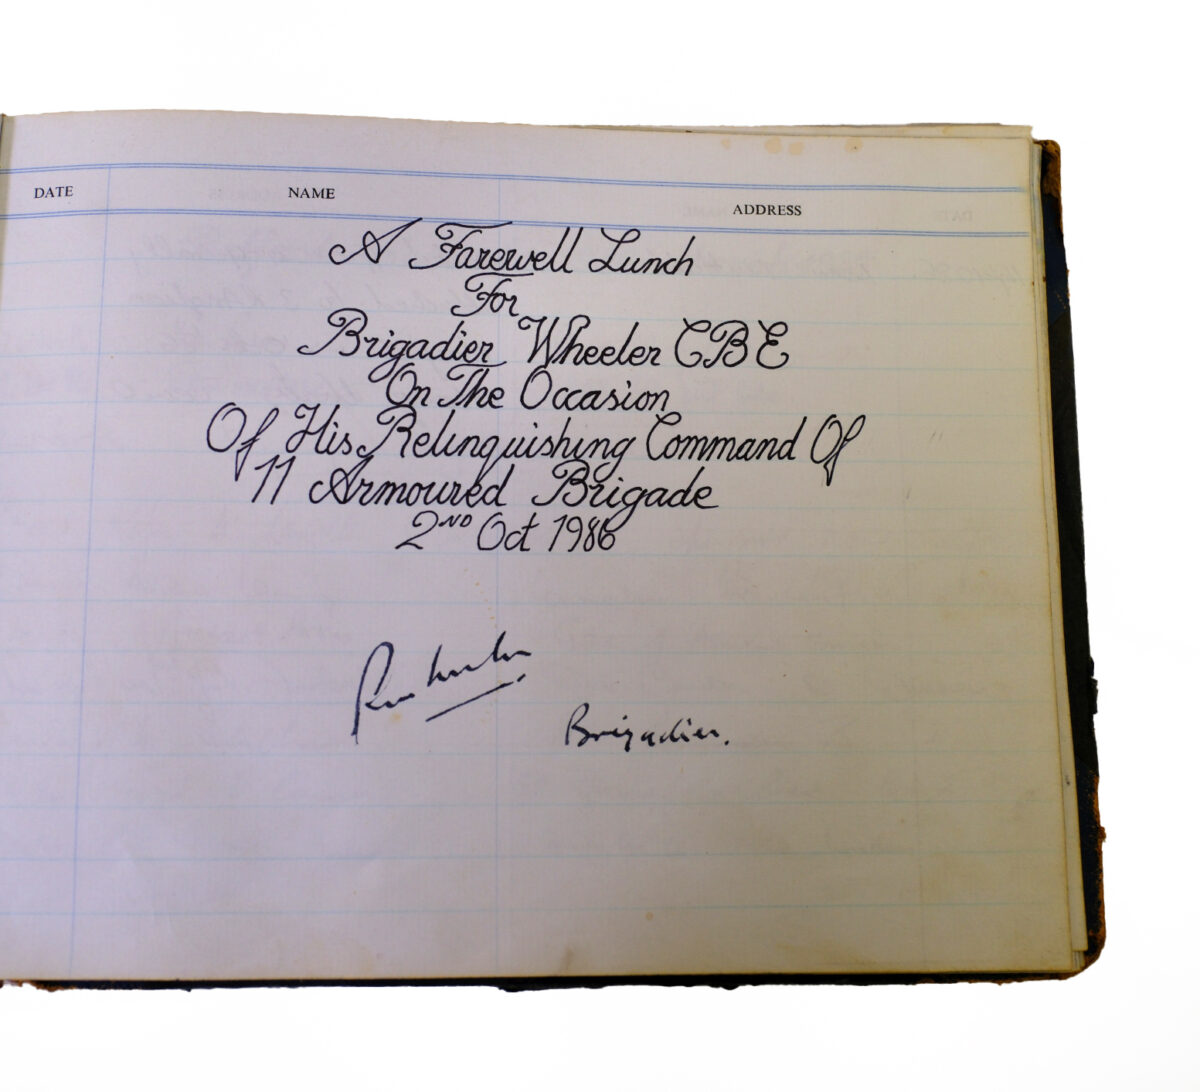 DATE NAME ADDRESS
A Farewell Lunch
For
Brigadier Wheeler CBE
On The Occasion
Of His Relinquishing Command Of
11 Armoured Brigade
2ND Oct 1986
Brigadier.